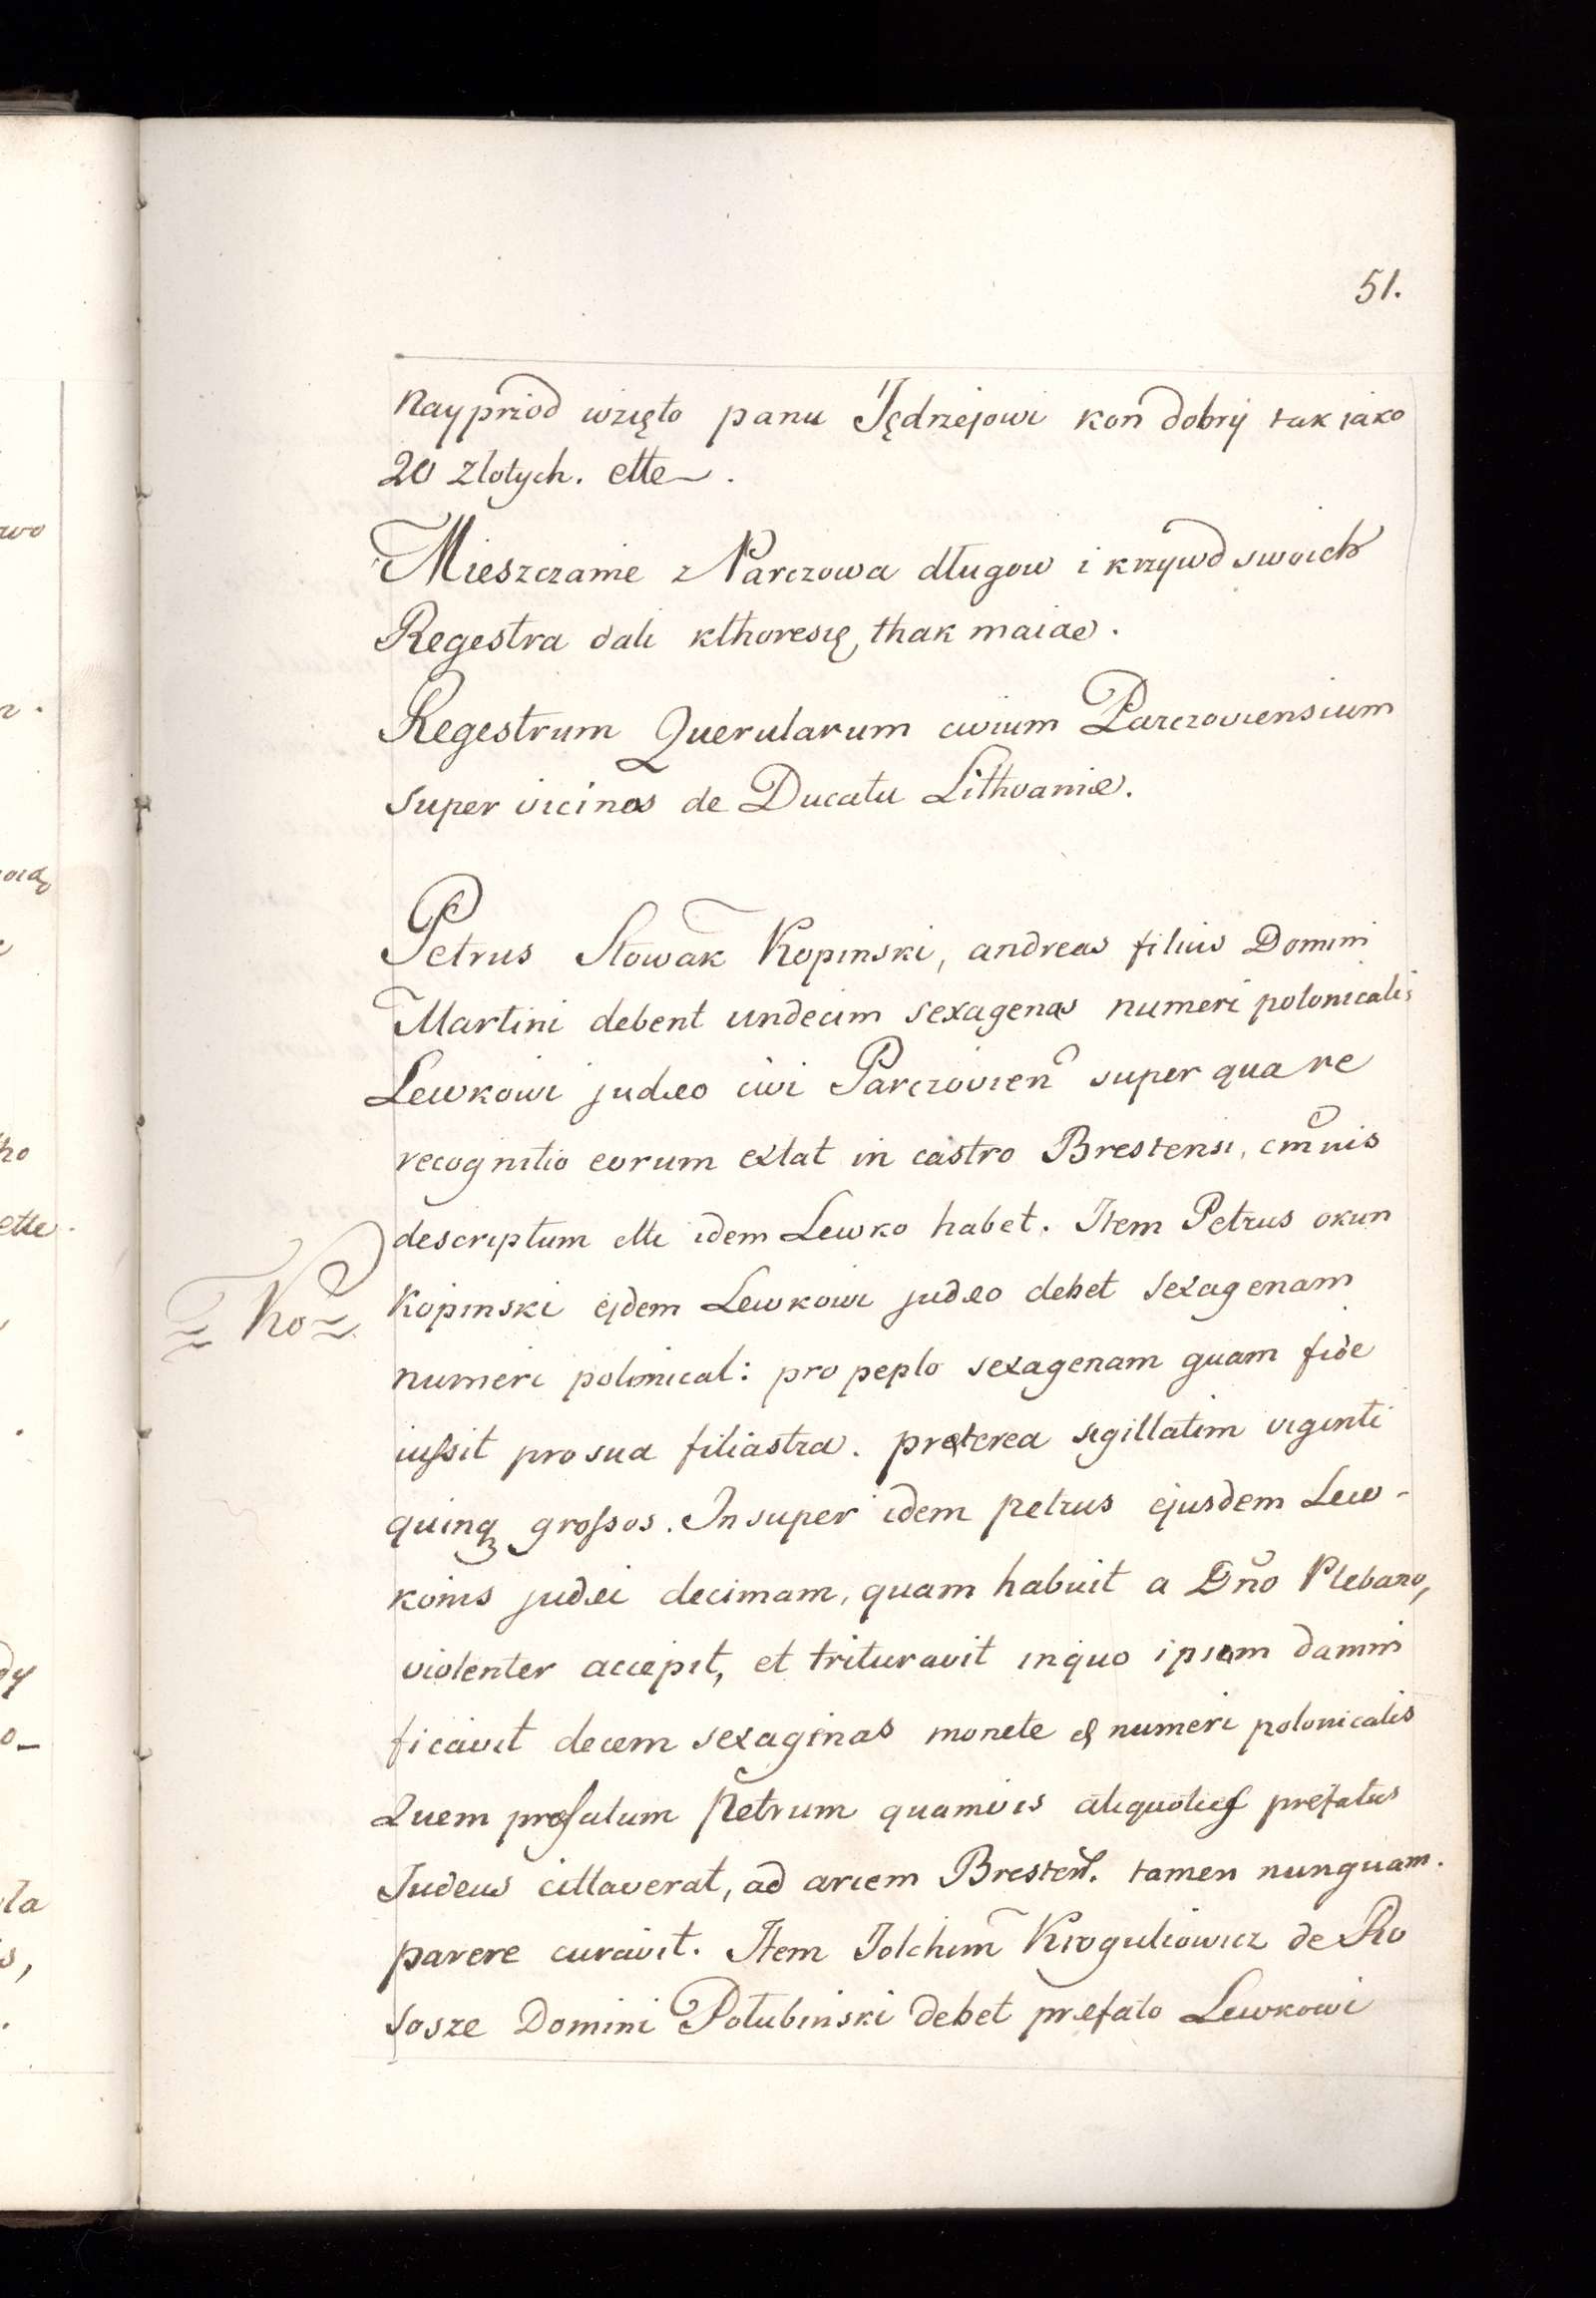 51.
Naypriod wzięto panu Jędrzejowi koń dobrij tak iako
20 zlotych. ette.
Mieszczanie z Parczowa długow i krzywd swoich
Regestra dali kthoresię thak maiae.
Regestrum Querularum civium Parczoviensium
super vicinos de Ducatu Lithvaniæ.
Petrus Slowak Kopinski, andreas filius Domini
Martini debent undecim sexagenas numeri polonicalis
Lewkowi judæo civi Parczovien super qua re
recognitio eorum extat in castro Brestensi, cmuis
descriptum ette idem Lewko habet. Item Petrus okun
Kopinski ejdem Lewkowi judæo debet sexagenam
numeri polinical: pro peplo sexagenam quam fide
iussit pro sua filiastra. præterea sigillatim viginti
quinqꝫ grossos. Insuper idem petrus ejusdem Lew-
konis judæi decimam, quam habuit a Dño Plebano,
violenter accepit, et trituravit inquo ipsum damni
ficavit decem sexaginas monete & numeri polonicalis
Quem præfatum Petrum quamvis aliquoties prefatus
Judeus cittaverat, ad arcem Bresten. tamen nunquam.
parere curavit. Item Jolchim Kroguliowicz de Ro
sosze Domini Połubinski debet præfato Lewkowi